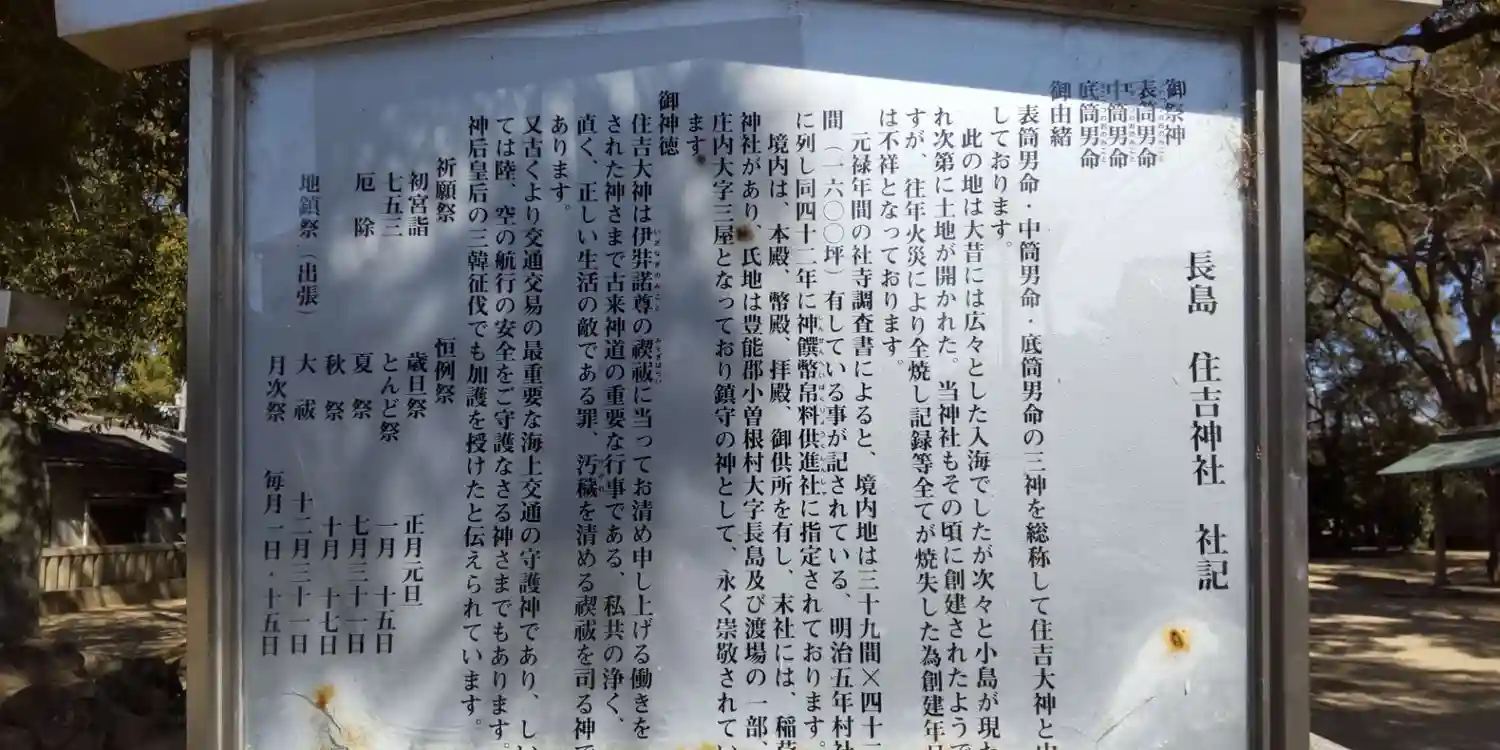 長島　住吉神社　社記
御祭神
表筒男命
中筒男命
底筒男命
御由緒
表筒男命・中筒男命・底筒男命の三神を総称して住吉大神と
しております。
此の地は大昔には広々とした入海でしたが次々と小島が現
れ次第に土地が開かれた。当神社もその頃に創建されたようで
すが、往年火災により全焼し記録等全てが焼失した為創建年
は不祥となっております。
元禄年間の社寺調査書によると、境内地は三十九間×四十
間（一六〇〇坪）有している事が記されている、明治五年村社
に列し同四十二年に神饌幣帛料供進社に指定されております。
境内は、本殿、幣殿、拝殿、御供所を有し、末社には、稲荷
神社があり、氏地は豊能郡小曽根村大字長島及び渡場の一部、
庄内大字三屋となっており鎮守の神として、永く崇敬されてい
ます。
御神徳
住吉大神は伊弉諾尊の禊祓に当ってお清め申し上げる働きを
された神さまで古来神道の重要な行事である、私共の浄く、
直く、正しい生活の敵である罪、汚穢を清める禊祓を司る神で
あります。
又古くより交通交易の最重要な海上交通の守護神であり、しい
ては陸、空の航行の安全をご守護なさる神さまでもあります。
神后皇后の三韓征伐でも加護を授けたと伝えられています。
祈願祭
初宮詣
七五三
厄除
地鎮祭（出張）
恒例祭
歳旦祭　正月元旦
とんど祭　一月十五日
夏祭　七月三十一日
秋祭　十月十七日
大祓　十二月三十一日
月次祭　毎月一日・十五日